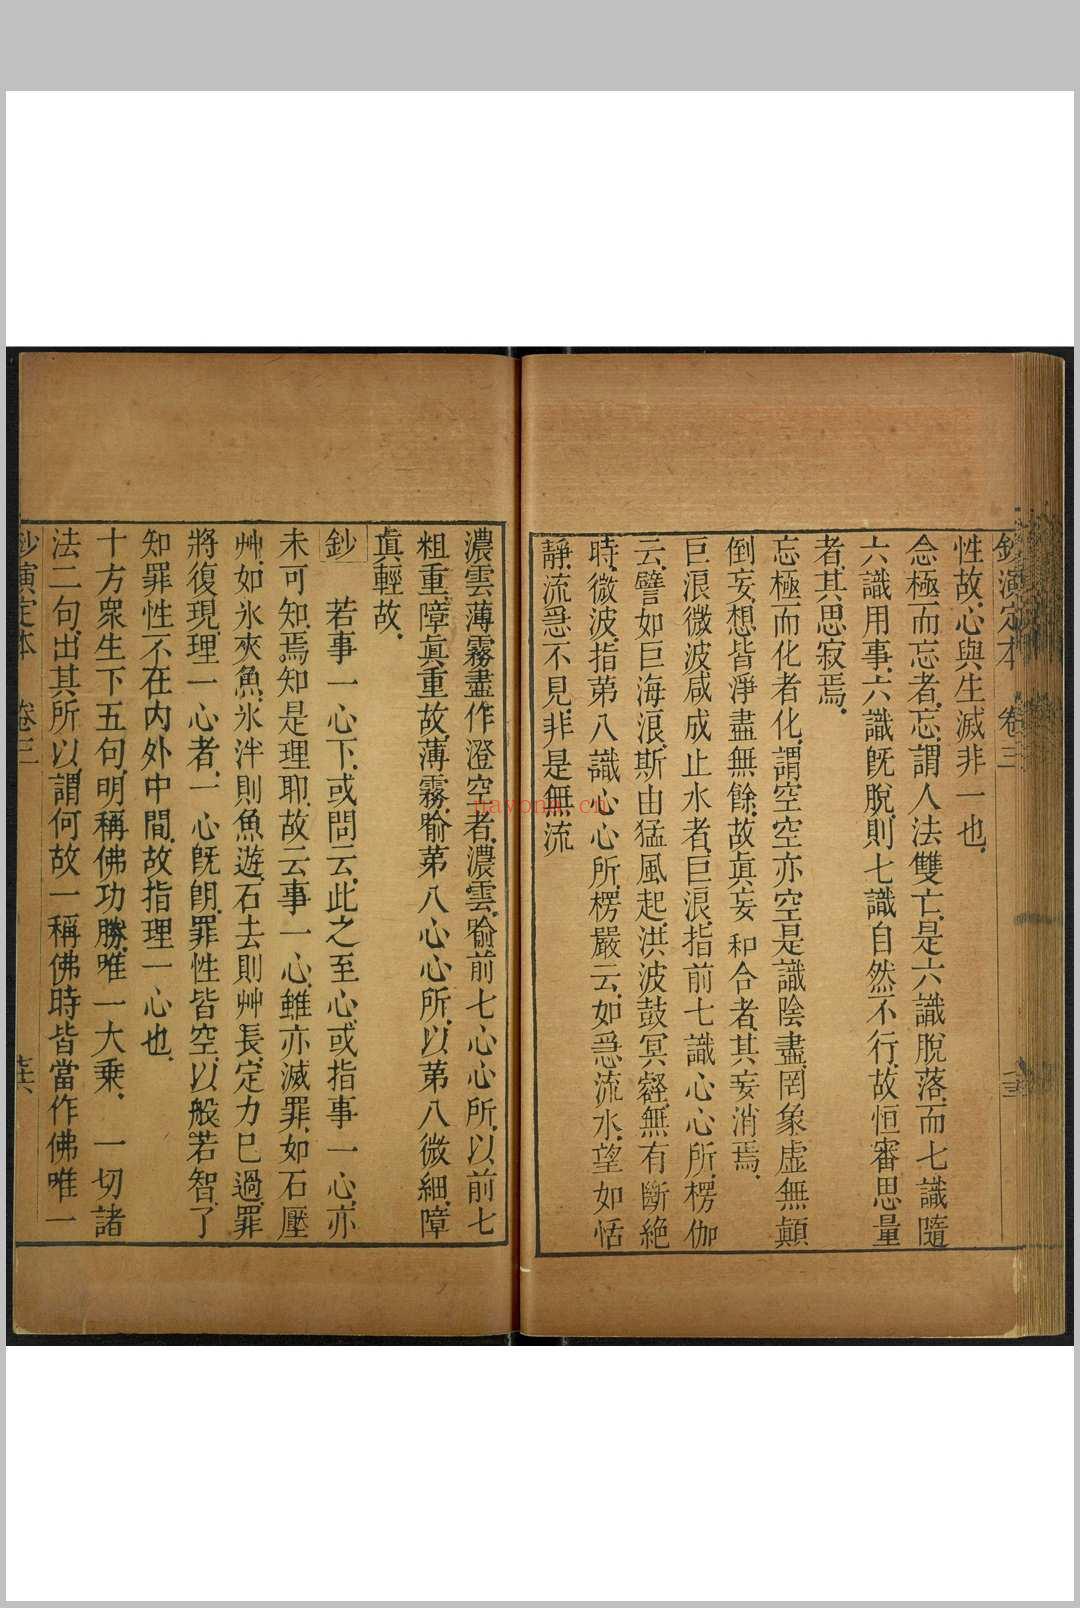 鈔演定本 卷三
性故、心與生滅非一也、
念極而忘者、忘、謂人法雙亡、是六識脫落、而七識隨
六識用事、六識旣脫、則七識自然不行、故恒審思量
者、其思寂焉、
忘極而化者、化、謂空空亦空、是識陰盡、罔象虛無、顛
倒妄想、皆淨盡無餘、故眞妄和合者、其妄消焉、
巨浪微波咸成止水者、巨浪、指前七識心心所、楞伽
云、譬如巨海浪、斯由猛風起、洪波鼓冥壑、無有斷絶
時、微波、指第八識心心所、楞嚴云、如急流水、望如恬
靜、流急不見、非是無流
濃雲薄霧盡作澄空者、濃雲、喻前七心心所、以前七
粗重、障眞重故、薄霧、喻第八心心所、以第八微細、障
眞輕故、
鈔 若事一心下、或問云、此之至心、或指事一心、亦
未可知、焉知是理耶、故云事一心、雖亦滅罪、如石壓
艸、如氷夾魚、氷泮則魚遊、石去則艸長、定力巳過、罪
將復現、理一心者、一心旣朗、罪性皆空、以般若智、了
知罪性不在內外中間、故指理一心也、
十方衆生下五句、明稱佛功勝、唯一大乘、一切諸
法二句、出其所以、謂何故一稱佛時皆當作佛、唯一
鈔演定本 卷三
nayona.cn